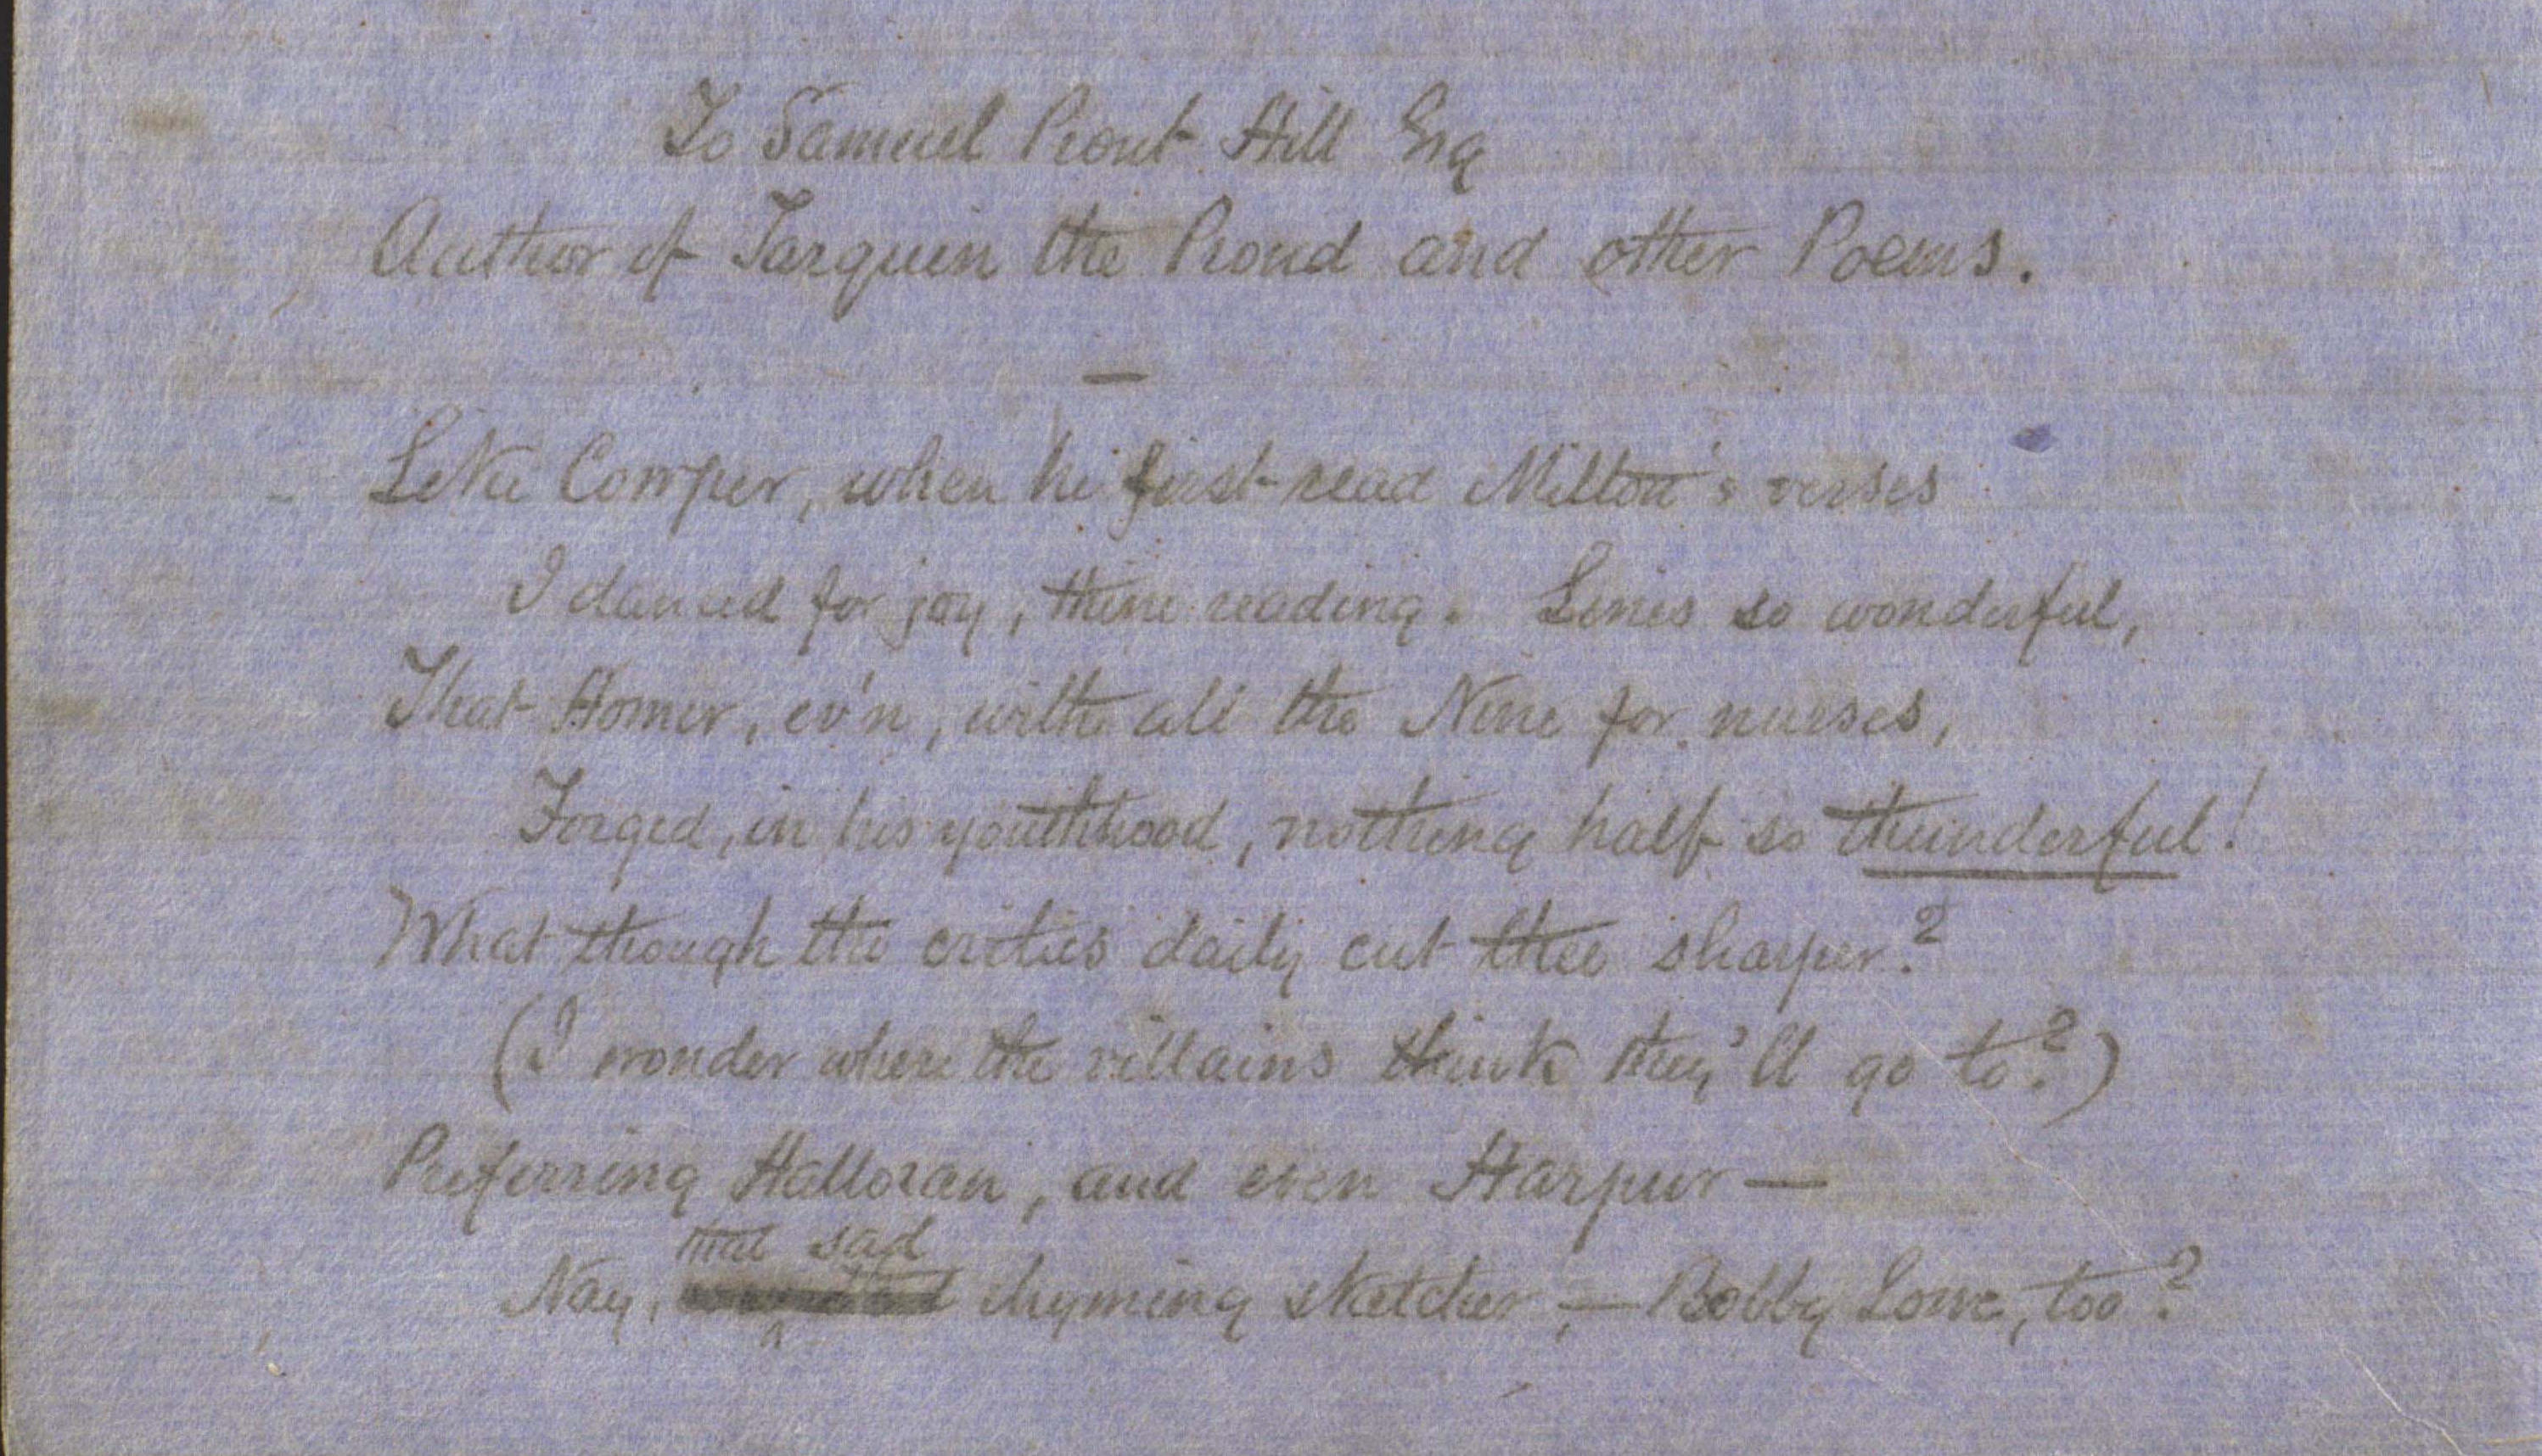 To Samuel Prout Hill Esq
Author of Tarquin the Proud and other Poems.
—
Like Cowper, when he first read Milton's verses
I danced for joy, thine reading. Lines so wonderful,
That Homer, ev'n, with all the Nine for nurses,
Forged, in his youthhood, nothing half so thunderful!
What though the critics daily cut thee sharper?
(I wonder where the villains think they'll go to?)
Preferring Halloran, and even Harpur —
that sad
Nay, rhyming sketcher, — Bobby Lowe, too?